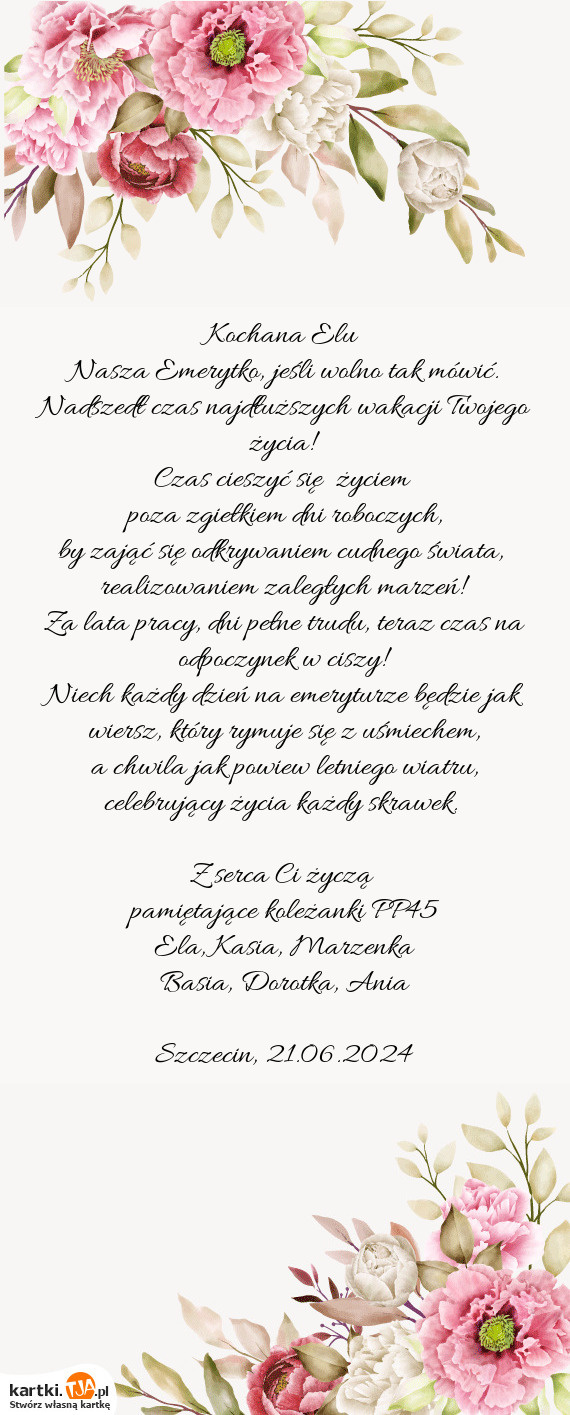 Kochana Elu
Nasza Emerytko, jeśli wolno tak mówić.
Nadszedł czas najdłuższych wakacji Twojego
życia!
Czas cieszyć się życiem
poza zgiełkiem dni roboczych,
by zająć się odkrywaniem cudnego świata,
realizowaniem zaległych marzeń!
Za lata pracy, dni pełne trudu, teraz czas na
odpoczynek w ciszy!
Niech każdy dzień na emeryturze będzie jak
wiersz, który rymuje się z uśmiechem,
a chwila jak powiew letniego wiatru,
celebrujący życia każdy skrawek.
Z serca Ci życzą
pamiętające koleżanki PP45
Ela, Kasia, Marzenka
Basia, Dorotka, Ania
Szczecin, 21.06.2024
kartki.TJA.pl
Stwórz własną kartkę